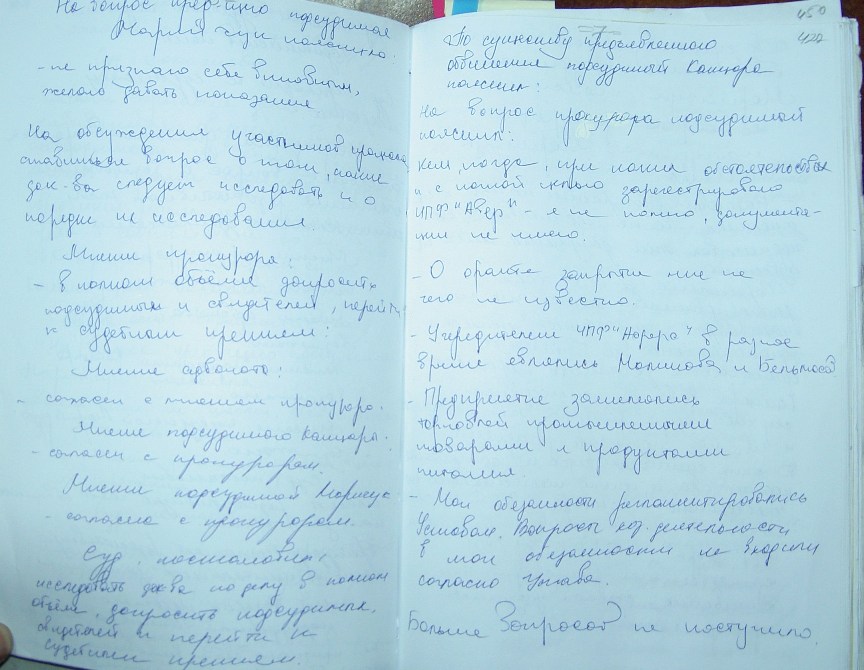 На вопрос пред-щего подсудимая
пояснила:
- не признаю себя виновным,
желаю давать показания
На обсуждения участников процесса
ставиться вопрос о том, какие
док-ва следует исследовать и о
порядке их исследования.
Мнение прокурора:
- в полном объёме допросить
подсудимых и свидетелей, перейти
к судебным прениям:
Мнение адвоката:
- согласен с мнением прокурора.
Мнение подсудимого Кашкара.
- согласен с прокурором.
Мнение подсудимой
- согласна с прокурором.
Суд постановил:
исследовать док-ва по делу в полном
объёме, допросить подсудимых,
свидетелей и перейти к
судебным прениям.
450
422
По существу предъявленного
обвинения подсудимый
пояснил:
На вопрос прокурора подсудимый
пояснил:
Кем, когда, при каких обстоятельствах
и с какой целью зарегестрировано
ЧПФ - я не помню, документа-
ции не имею.
- О факте закрытия мне не
чего не известно.
- Учередителем ЧПФ в разное
время являлись и
- Предприятие занималось
торговлей промышленными
товарами и продуктами
питания.
- Мои обязанности регламинтировались
Уставом. Вопросы деятельности
в мои обязанности не входили
согласно Устава.
Больше вопросов не поступило.